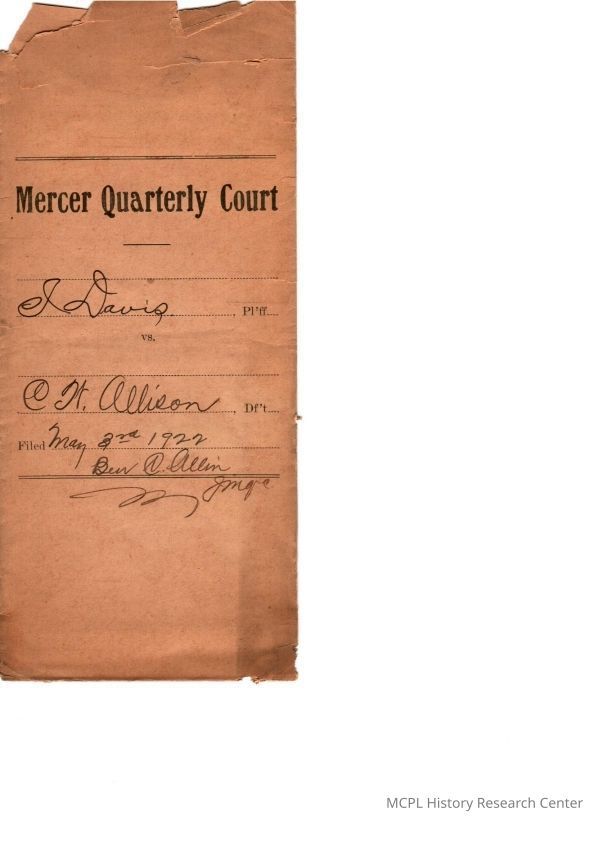 Mercer Quarterly Court
I Davis, Pl'ff
vs.
C. H. Allison, Df't
Filed May 3rd 1922
Ben C. Allin
JMQC
MCPL History Research Center